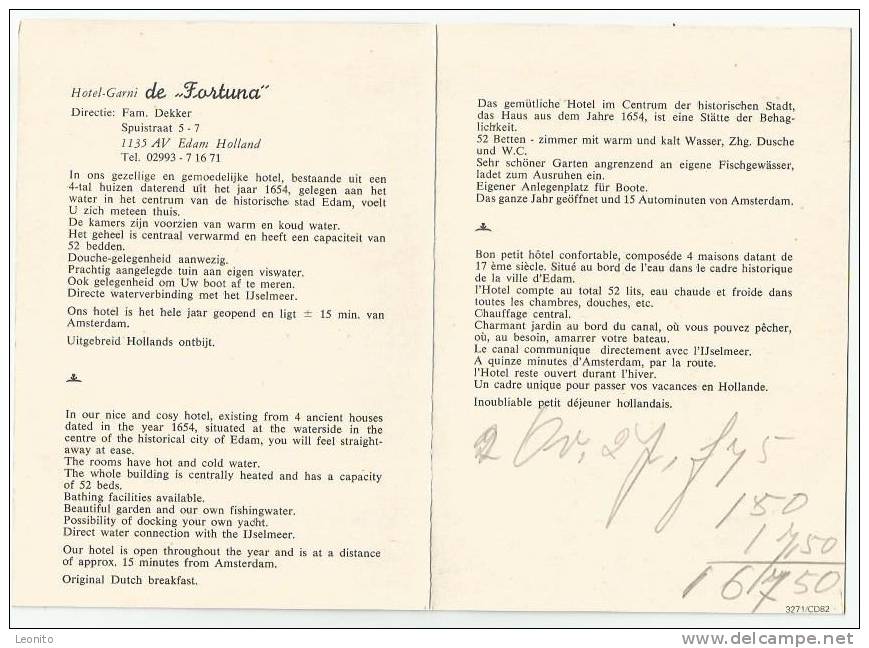 Hotel-Garni de „Fortuna”
Directie: Fam. Dekker
Spuistraat 5 - 7
1135 AV Edam Holland
Tel. 02993 - 7 16 71
In ons gezellige en gemoedelijke hotel, bestaande uit een
4-tal huizen daterend uit het jaar 1654, gelegen aan het
water in het centrum van de historische stad Edam, voelt
U zich meteen thuis.
De kamers zijn voorzien van warm en koud water.
Het geheel is centraal verwarmd en heeft een capaciteit van
52 bedden.
Douche-gelegenheid aanwezig.
Prachtig aangelegde tuin aan eigen viswater.
Ook gelegenheid om Uw boot af te meren.
Directe waterverbinding met het IJselmeer.
Ons hotel is het hele jaar geopend en ligt ± 15 min. van
Amsterdam.
Uitgebreid Hollands ontbijt.
In our nice and cosy hotel, existing from 4 ancient houses
dated in the year 1654, situated at the waterside in the
centre of the historical city of Edam, you will feel straight-
away at ease.
The rooms have hot and cold water.
The whole building is centrally heated and has a capacity
of 52 beds.
Bathing facilities available.
Beautiful garden and our own fishingwater.
Possibility of docking your own yacht.
Direct water connection with the IJselmeer.
Our hotel is open throughout the year and is at a distance
of approx. 15 minutes from Amsterdam.
Original Dutch breakfast.
Das gemütliche Hotel im Centrum der historischen Stadt,
das Haus aus dem Jahre 1654, ist eine Stätte der Behag-
lichkeit.
52 Betten - zimmer mit warm und kalt Wasser, Zhg. Dusche
und W.C.
Sehr schöner Garten angrenzend an eigene Fischgewässer,
ladet zum Ausruhen ein.
Eigener Anlegenplatz für Boote.
Das ganze Jahr geöffnet und 15 Autominuten von Amsterdam.
Bon petit hôtel confortable, composéde 4 maisons datant de
17 ème siècle. Situé au bord de l'eau dans le cadre historique
de la ville d'Edam.
l'Hotel compte au total 52 lits, eau chaude et froide dans
toutes les chambres, douches, etc.
Chauffage central.
Charmant jardin au bord du canal, où vous pouvez pêcher,
où, au besoin, amarrer votre bateau.
Le canal communique directement avec l'IJselmeer.
A quinze minutes d'Amsterdam, par la route.
l'Hotel reste ouvert durant l'hiver.
Un cadre unique pour passer vos vacances en Hollande.
Inoubliable petit déjeuner hollandais.
75
150
17,50
167,50
3271/CD82
Leonito
www.delcampe.net